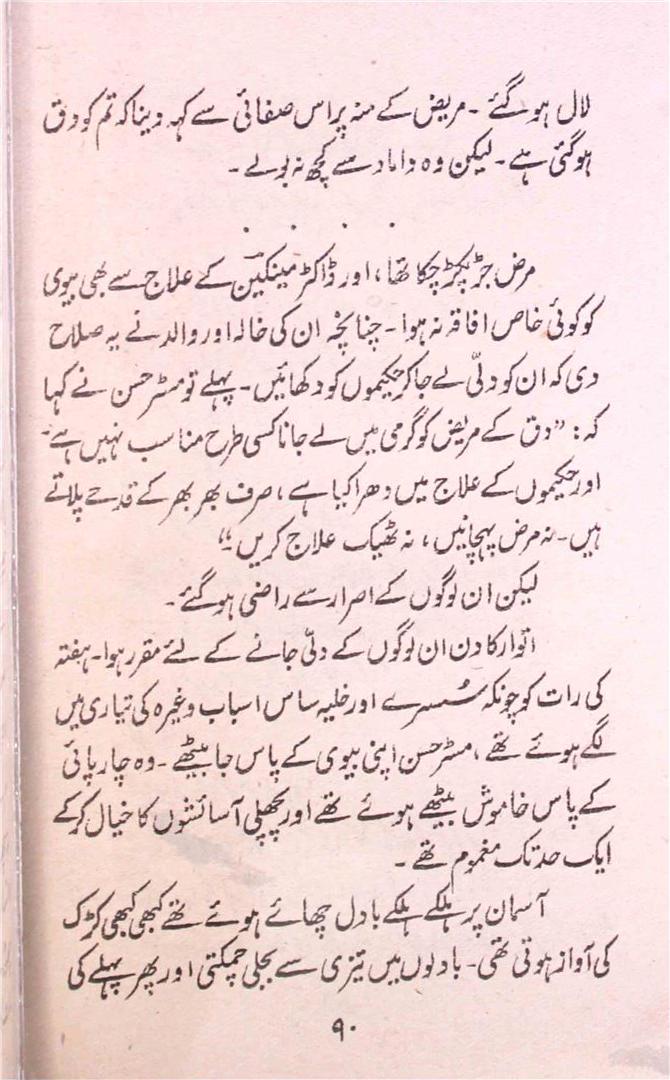 لال ہو گئے ۔ مریض کے منہ پر اس صفائی سے کہہ دینا کہ تم کو دق
ہو گئی ہے ۔ لیکن وہ داماد سے کچھ نہ بولے ۔
. . . .
مرض جڑ پکڑ چکا تھا، اور ڈاکٹر مینکین کے علاج سے بھی بیوی
کو کوئی خاص افاقہ نہ ہوا ۔ چنانچہ ان کی خالہ اور والد نے یہ صلاح
دی کہ ان کو دلّی لے جا کر حکیموں کو دکھائیں ۔ پہلے تو مسٹر حسن نے کہا
کہ : ”دق کے مریض کو گرمی میں لے جانا کسی طرح مناسب نہیں ہے ۔
اور حکیموں کے علاج میں دھرا کیا ہے ، صرف بھر بھر کے قدحے پلاتے
ہیں ۔ نہ مرض پہچانیں ، نہ ٹھیک علاج کریں ۔“
لیکن ان لوگوں کے اصرار سے راضی ہو گئے ۔
اتوار کا دن ان لوگوں کے دلّی جانے کے لئے مقرر ہوا ۔ ہفتہ
کی رات کو چونکہ سُسرے اور خلیہ ساس اسباب وغیرہ کی تیاری میں
لگے ہوئے تھے ، مسٹر حسن اپنی بیوی کے پاس جا بیٹھے ۔ وہ چارپائی
کے پاس خاموش بیٹھے ہوئے تھے اور پچھلی آسائشوں کا خیال کر کے
ایک حد تک مغموم تھے ۔
آسمان پر ہلکے ہلکے بادل چھائے ہوئے تھے کبھی کبھی کڑک
کی آواز ہوتی تھی ۔ بادلوں میں تیزی سے بجلی چمکتی اور پھر پہلے کی
۹۰